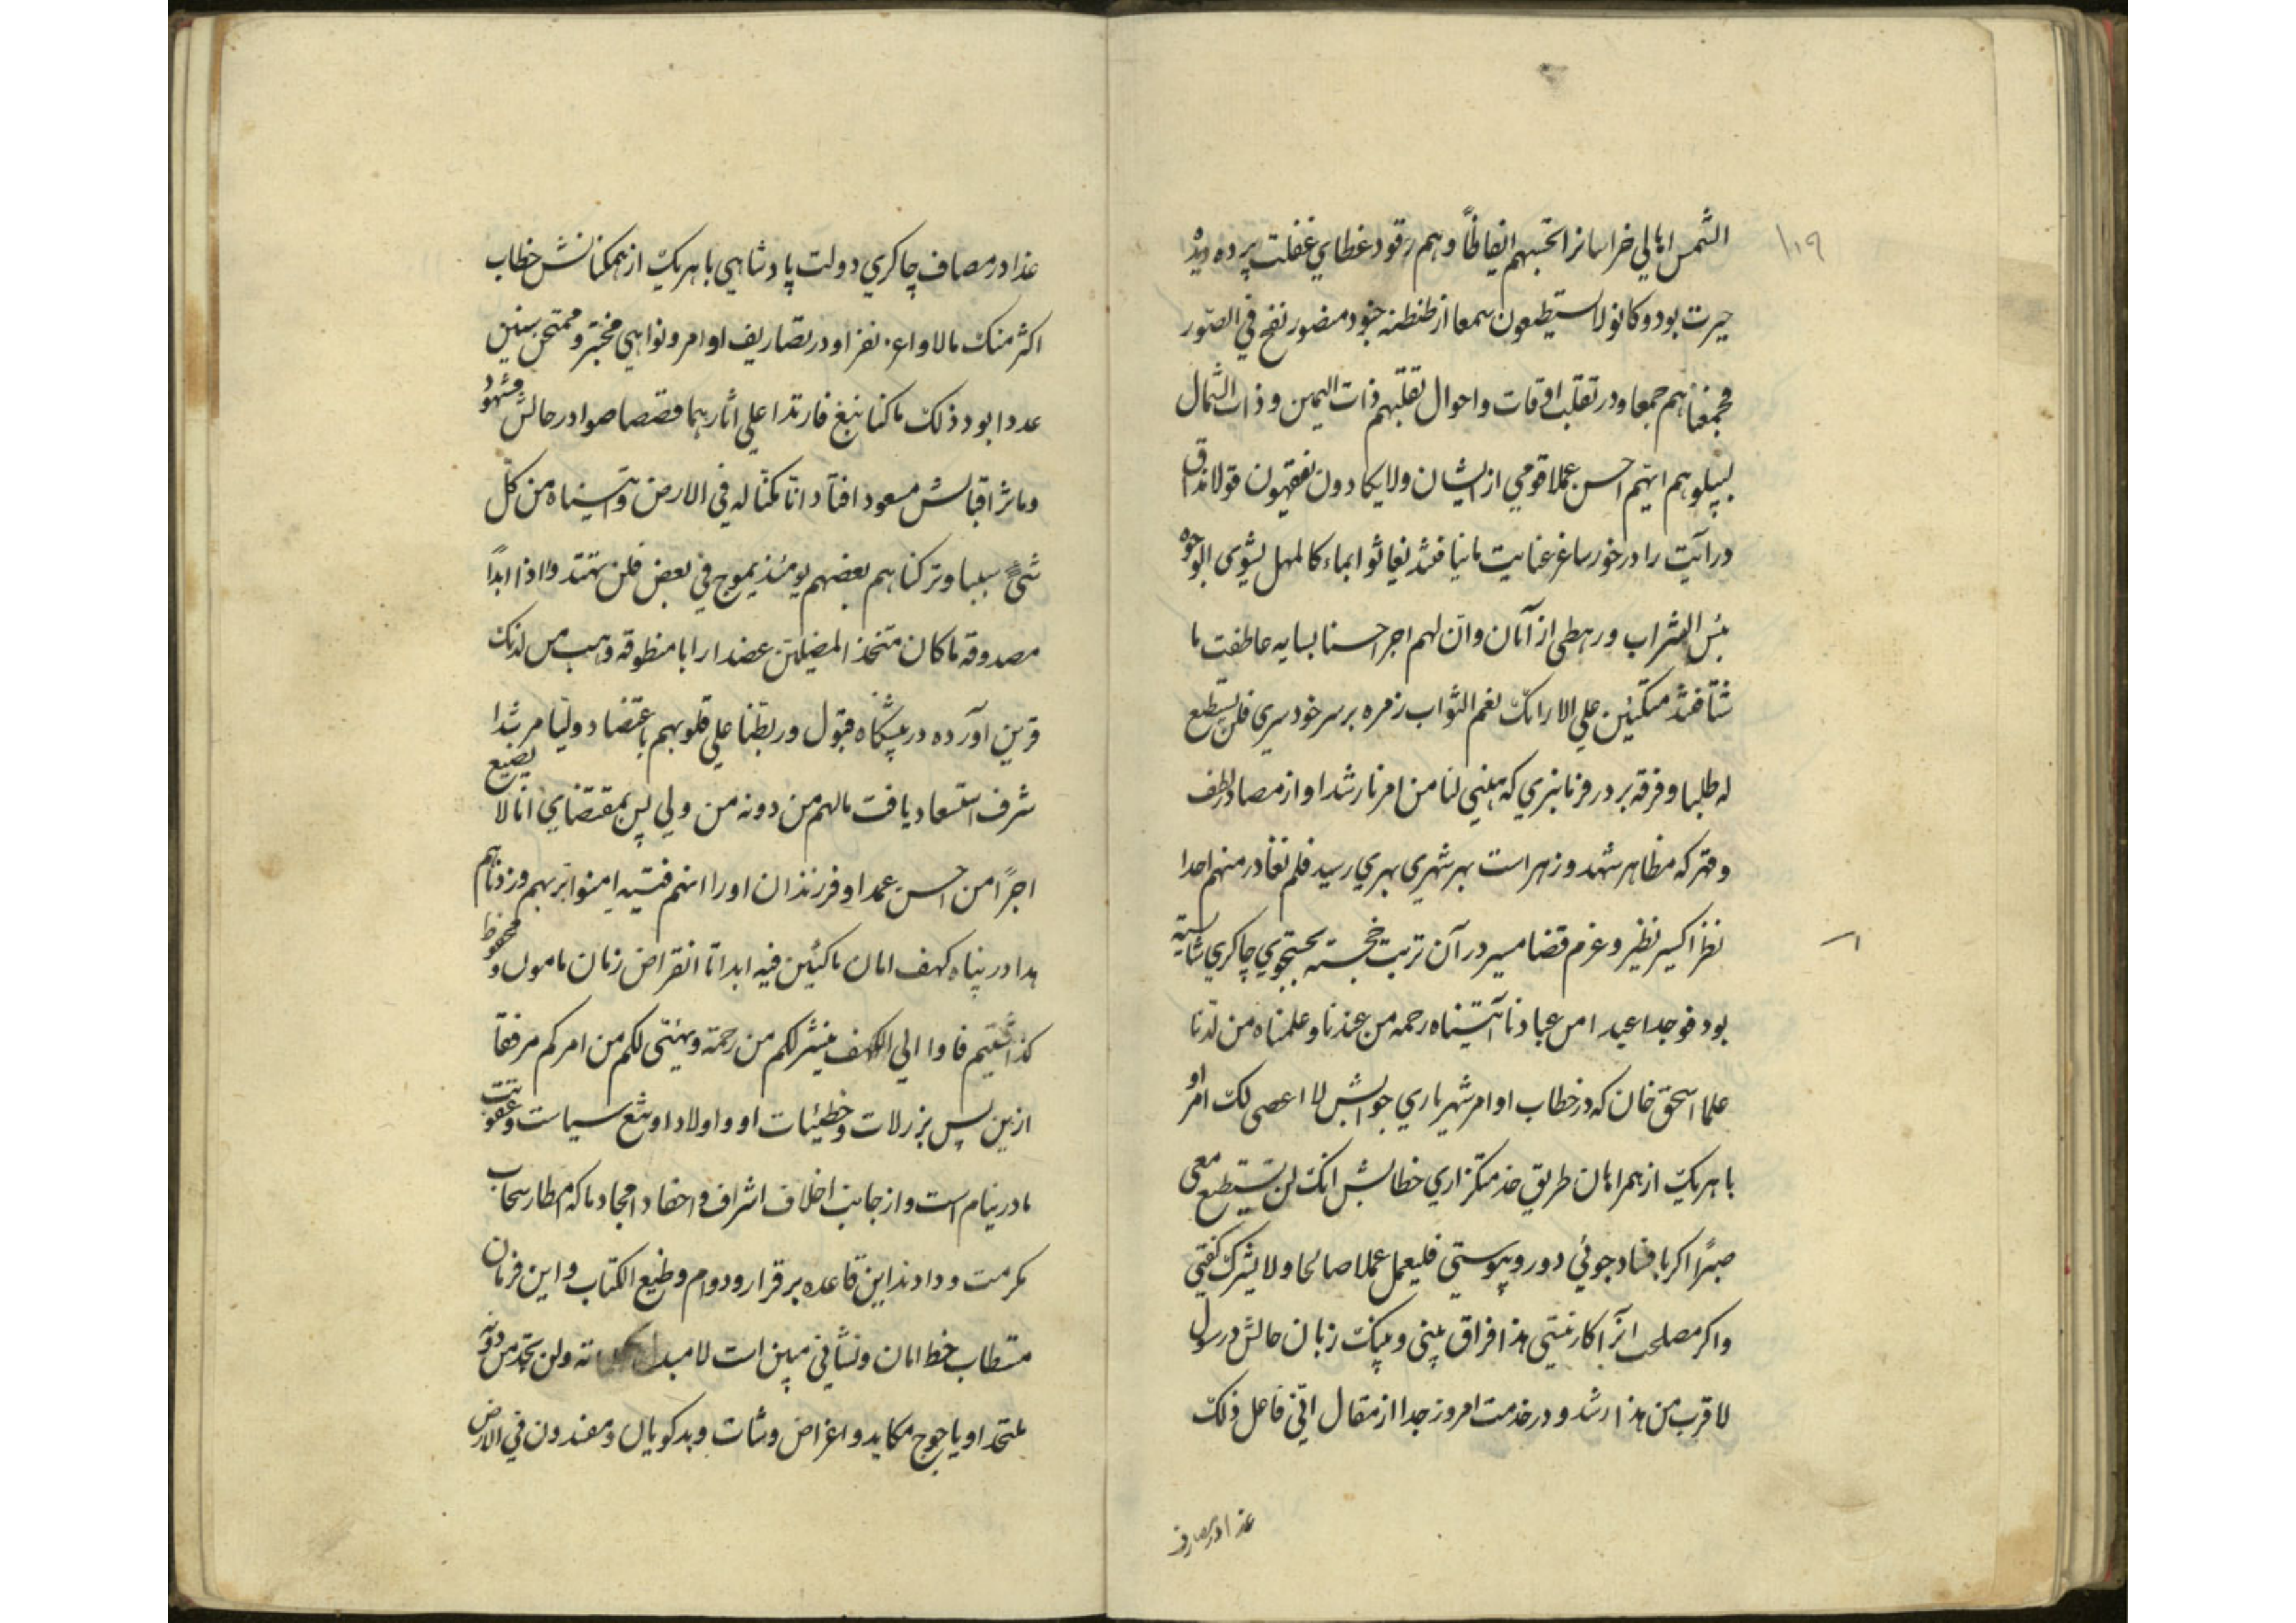 ۱۱۹
الشمس اهالی خراسانرا تحسبهم ایقاظاً و هم رقود غطای غفلت پرده دیدهٔ
حیرت بود و کانو لا یستطیعون سمعا از طنطنه جنود منصور نفخ فی الصور
فجمعناهم جمعا و در تقلب اوقات و احوال نقلبهم ذات الیمین و ذات الشمال
لیبلوهم ایهم احسن عملا قومی از ایشان و لا یکادون یفقهون قولا مذاق
درایت را در خور ساغر عنایت ما نیافتند یغاثوا بماء کالمهل یشوی الوجوه
بئس الشراب و رهطی از آنان و ان لهم اجر احسنا بسایه عاطفت ما
شتافتند متکئین علی الارائک نعم الثواب زمره بر سر خود سری فلن یستطیع
له طلبا و فرقه بر در فرمانبری که هیئی لنا من امرنا رشدا و از مصادر لطف
و قهر که مظاهر شهد و زهر است بهر شهری بهری رسید فلم نغادر منهم احدا
نظر اکسیر نظیر و عزم قضا مسیر در آن تربت خجسته بجستجوی چاکری شایسته
بود فوجدا عبدا من عبادنا آتیناه رحمه من عندنا و علمناه من لدنا
علما اسحق خان که در خطاب اوامر شهریاری جوابش لا اعصی لک امرا و
با هر یک از همراهان طریق خدمتگزاری خطابش انک لن تستطیع معی
صبرا اکر با فساد جوئی دوروپیوستی فلیعمل عملا صالحا و لا یشرک کفتی
و اکر مصلحت انرا کار نیستی هذا فراق بینی و بینک زبان حالش در سؤل
لاقرب من هذا رشدا و در خدمت امروز جدا از مقال انی فاعل ذلک
غدا در مصاف
غدا در مصاف چاکری دولت پادشاهی با هر یک از همکنانش خطاب
اکثر منک مالا و اعز نفرا و در تصاریف اوامر و نواهی مختبر و ممتحن سنین
عددا بود ذلک ما کنا نبغ فارتدا علی اثارهما قصصا صوادر حالش مشهود
و ماثر اقبالش مسعود افتاد انا مکنا له فی الارض و آتیناه من کل
شیء سببا و ترکناهم بعضهم یومئذ یموج فی بعض فلن یهتدوا اذا ابداً
مصدوقه ما کان متخذ المضلین عضدا را با منطوقه و هب من لدنک
قرین آورده در پیشگاه قبول و ربطنا علی قلوبهم باعتضاد ولیا مرشدا
شرف استسعاد یافت مالهم من دونه من ولی پس بمقتضای انا لا یضیع
اجراً من احسن عملا و فرزندان او را انهم فتیه امنوا بربهم و زدناهم
هدا در پناه کهف امان ماکثین فیه ابدا تا انقراض زمان مامول و محفوظ
کذاشتیم فاوا الی الکهف ینشر لکم من رحمته و یهیئی لکم من امرکم مرفقا
از ین پس بر زلات و خطیئات او و اولاد او تیغ سیاست و عقوبت
ما در نیام است و از جانب اخلاف اشراف و احفاد امجاد ما که امطار سحاب
مکرمت و دادند این قاعده برقرار و دوام وضع الکتاب و این فرمان
مستطاب خط امان و نشانی مبین است لا مبدل لکلماته و لن تجد من دونه
ملتحدا و یاجوج مکاید و اغراض وشات و بدکویان و مفسدون فی الارض